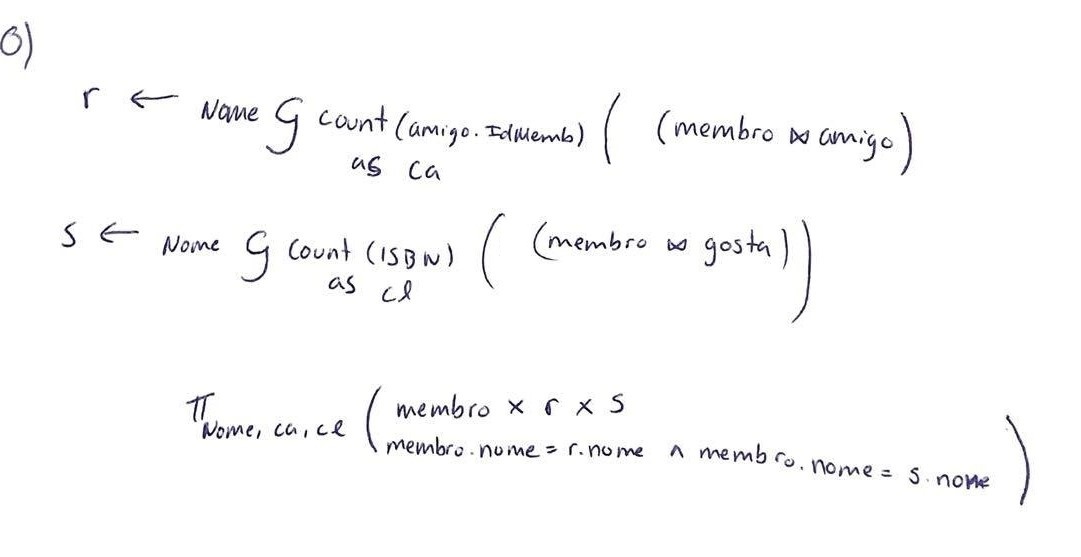 0)
r ← Nome G count (amigo.IdMemb) ( (membro ⋈ amigo)
as ca
s ← Nome G count (ISBN) ( (membro ⋈ gosta))
as cl
π Nome, ca, cl ( membro × r × s
membro.nome = r.nome ∧ membro.nome = s.nome )